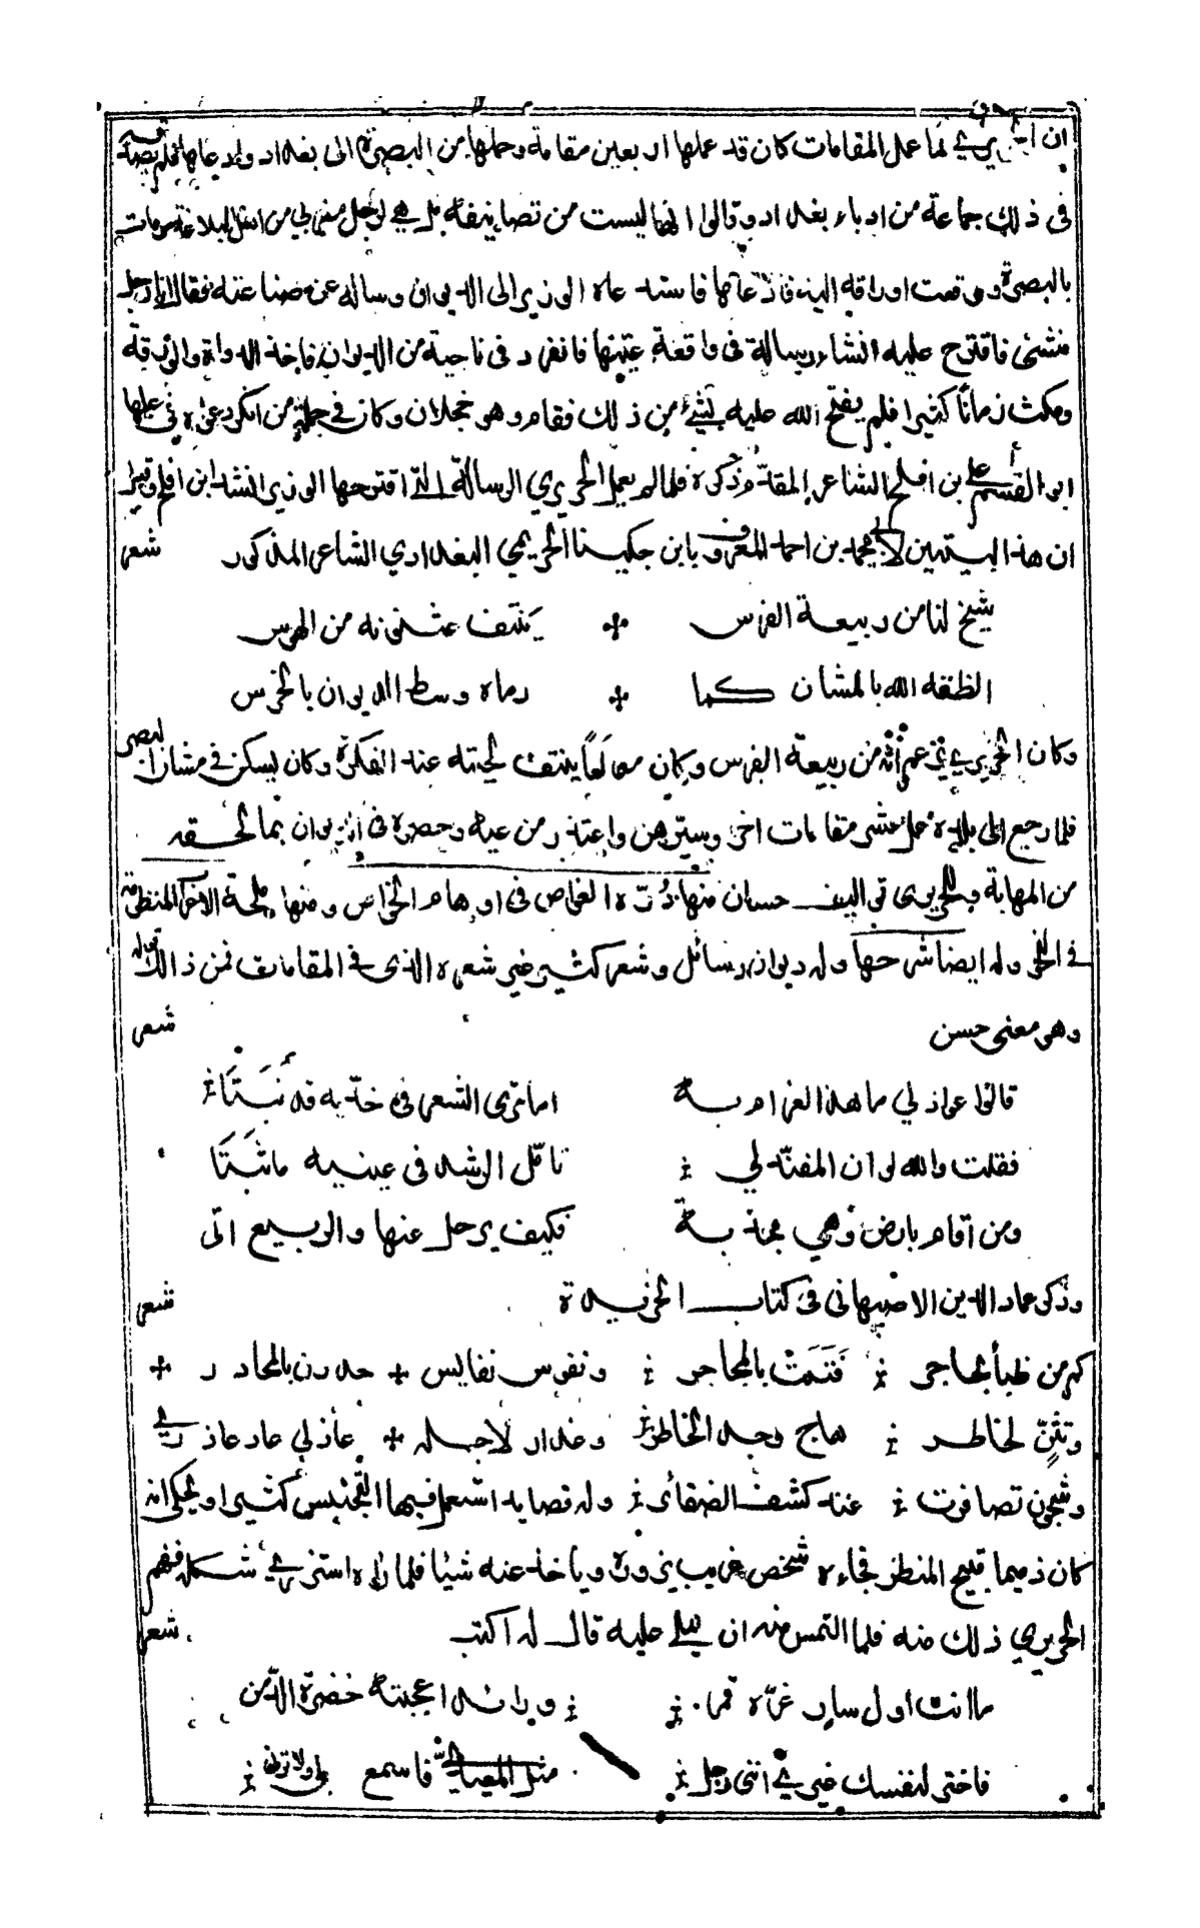 ان الحريري لما عمل المقامات كان قد عملها اربعين مقامة وحملها من البصرة الى بغداد وادعاها فلم يصدقه
فى ذلك جماعة من ادباء بغداد وقالوا انها ليست من تصانيفه بل هي لرجل مغربي من اهل البلاغة مات
بالبصرة ووقعت اوراقه اليه فادّعاها فاستدعاه الوزير الى الديوان وساله عن صناعته فقال انا رجل
منشئ فاقترح عليه انشاء رسالة فى واقعة عيّنها فانفرد فى ناحية من الديوان فاخذ الدواة والورقة
ومكث زماناً كثيرا فلم يفتح الله عليه بشيء من ذلك فقام وهو خجلان وكان في جملة من انكر دعواه في عملها
ابو القسم علي بن افلح الشاعر المقدّم ذكره فلما لم يعمل الحريري الرسالة التي اقترحها الوزير انشد ابن افلح وقيل
ان هذا البيتين لابي محمد بن احمد المعروف بابن جكينا الحريمي البغدادي الشاعر المذكور شعر
شيخ لنا من ربيعة الفرس ينتف عثنونه من الهوس
انطقه الله بالمشان كما رماه وسط الديوان بالخرس
وكان الحريري يزعم انّه من ربيعة الفرس وكان مولعاً ينتف لحيته عند الفكرة وكان يسكن في مشان البصرة
فلما رجع الى بلده عمل عشر مقامات اخر وسيّرهن واعتذر من عيه وحصره فى الديوان بما لحقه
من المهابة وللحريري تواليف حسان منها درّة الغواص فى اوهام الخواص ومنها ملحة الاعراب المنظومة
في النحو وله ايضا شرحها وله ديوان رسائل وشعر كثير غير شعره الذى في المقامات فمن ذالك قوله
وهو معنى حسن شعر
قالوا عواذلي ما هذا الغرام به اما ترى الشعر فى خدّيه قد نَبَتَا
فقلت والله لو ان المفنّد لي تامّل الرشد فى عينيه ما ثَبَتَا
ومن اقام بارض وهي مجدبة فكيف يرحل عنها والربيع اتى
وذكر عماد الدين الاصبهانى فى كتاب الخريدة شعر
كم من ظبأ بحاجر فَتَنَتْ بالمحاجر ونفوس نفايس حدرن بالمحادر
وتثنّ لخاطر هاج وجد الخاطر وعذار لاجله عاذلي عاد عاذري
وشجون تضافرت عند كشف الضفائر وله قصايد استعمل فيها التجنيس كثيرا ويحكى انه
كان ذميما قبيح المنظر فجاءه شخص غريب يزوره وياخذ عنه شيئا فلما راه استزرى شكله ففهم
الحريري ذلك منه فلما التمس منه ان يملي عليه قال له اكتب شعر
ما انت اول سار غرّه قمر ورائد اعجبته خضرة الدّمن
فاختر لنفسك غيري اننى رجل مثل المعيدي فاسمع بي ولا ترنى